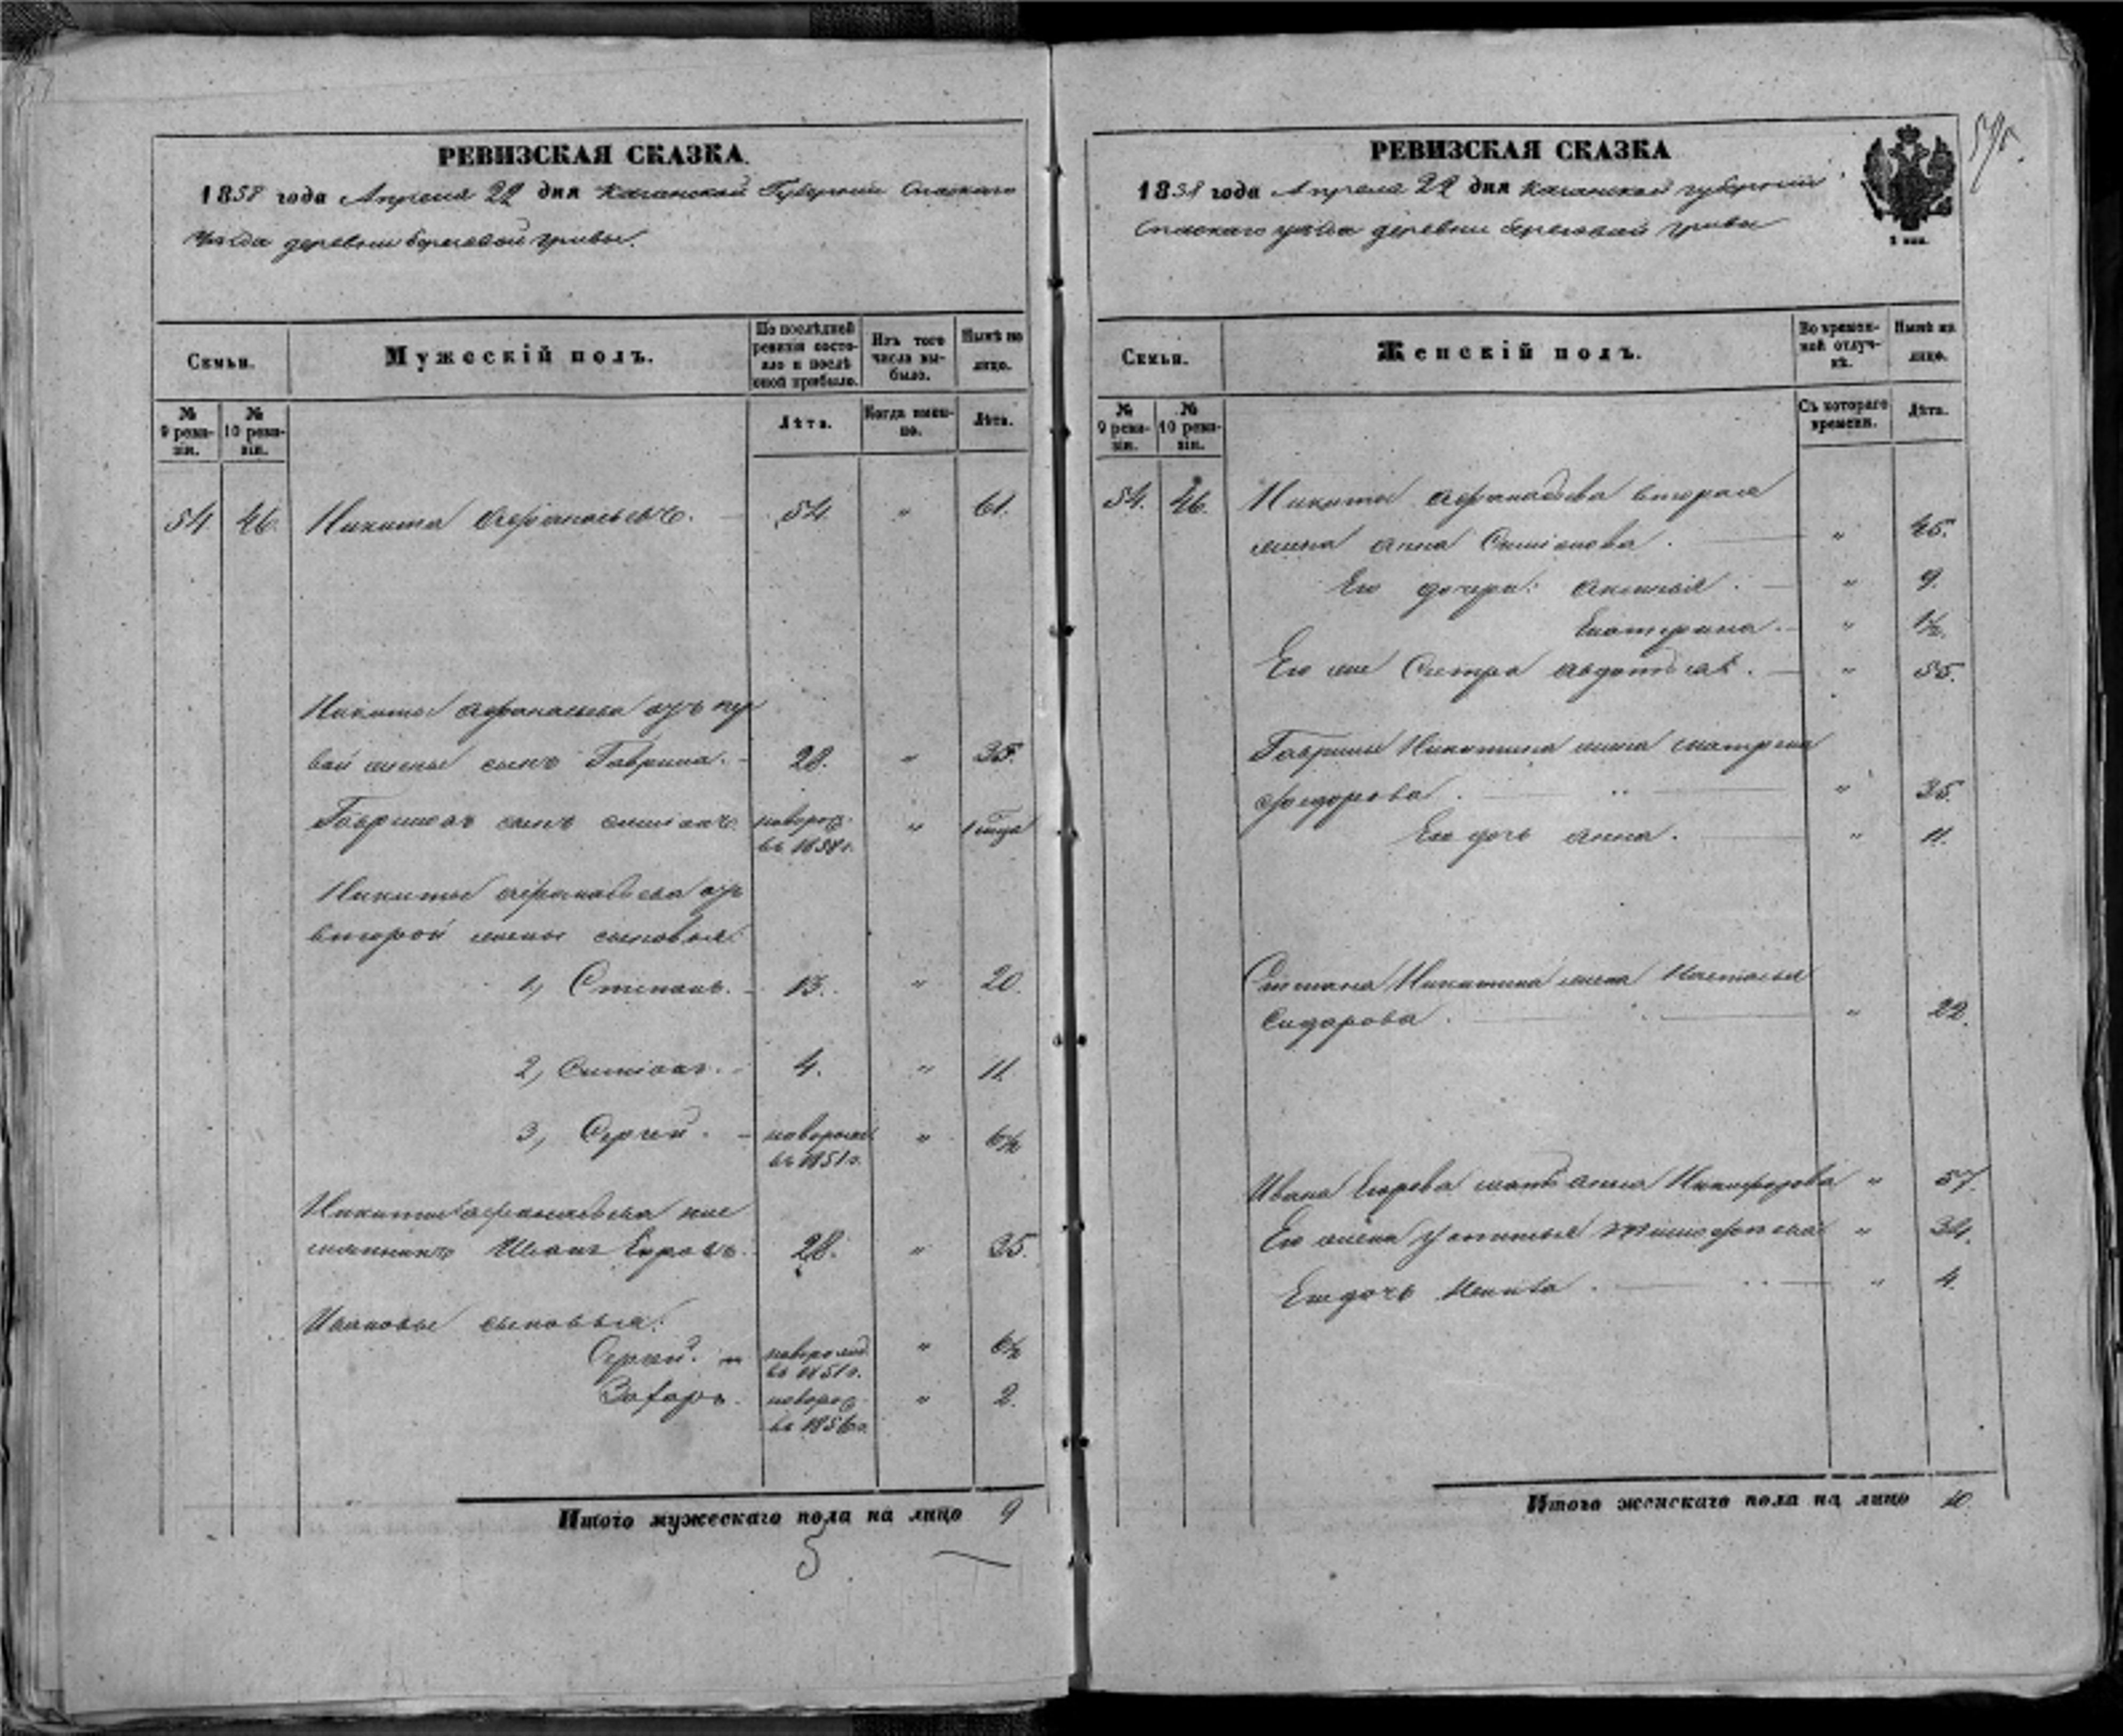 РЕВИЗСКАЯ СКАЗКА.
1858 года Апреля 22 дня Казанской Губернии Спаскаго
уѣзда деревни береговой гривы.
Семьи.
Мужескій полъ.
По послѣдней ревизіи состояло и послѣ оной прибыло.
Изъ того числа выбыло.
Нынѣ на лицо.
№ 9 ревизіи.
№ 10 ревизіи.
Лѣта.
Когда именно.
Лѣта.
54 46. Никита Афанасьевъ. 54 " 61.
Никиты Афанасьева отъ пер
вой жены сынъ Гаврила. 28. " 35.
Гаврилы сынъ Симіонъ новорож. въ 1858 г. "
Никиты Афанасьева отъ
второй жены сыновья:
1, Степанъ. 13. " 20.
2, Симіонъ. 4. " 11
3, Сергей. новорожд. въ 1851 г. " 6½
Никиты Афанасьева пле
мянникъ Иванъ Егоровъ. 28. " 35.
Ивановы сыновья:
Сергей. и новорожд. въ 1851 г. " 6½
Захаръ. новорож. въ 1856 г. " 2.
Итого мужескаго пола на лицо 9
РЕВИЗСКАЯ СКАЗКА
1858 года Апреля 22 дня Казанской губернии
Спаскаго уѣзда деревни береговой гривы
Семьи.
Женскій полъ.
Во временной отлучкѣ.
Нынѣ на лицо.
№ 9 ревизіи.
№ 10 ревизіи.
Съ котораго времени.
Лѣта.
54. 46. Никиты Афанасьева вторая
жена Анна Симіонова. " 45.
Его дочери: Аксинья. " 9.
Екатерина. " 1½.
Его же Сестра Авдотья. " 55.
Гаврилы Никитина жена Матрена
Федорова. " 35.
Его дочь Анна. " 11.
Степана Никитина жена Настасья
Сидорова. " 22.
Ивана Егорова мать Анна Никифорова " 57.
Его жена Устинья Тимофеева " 34.
Его дочь " 4.
Итого женскаго пола на лицо 10